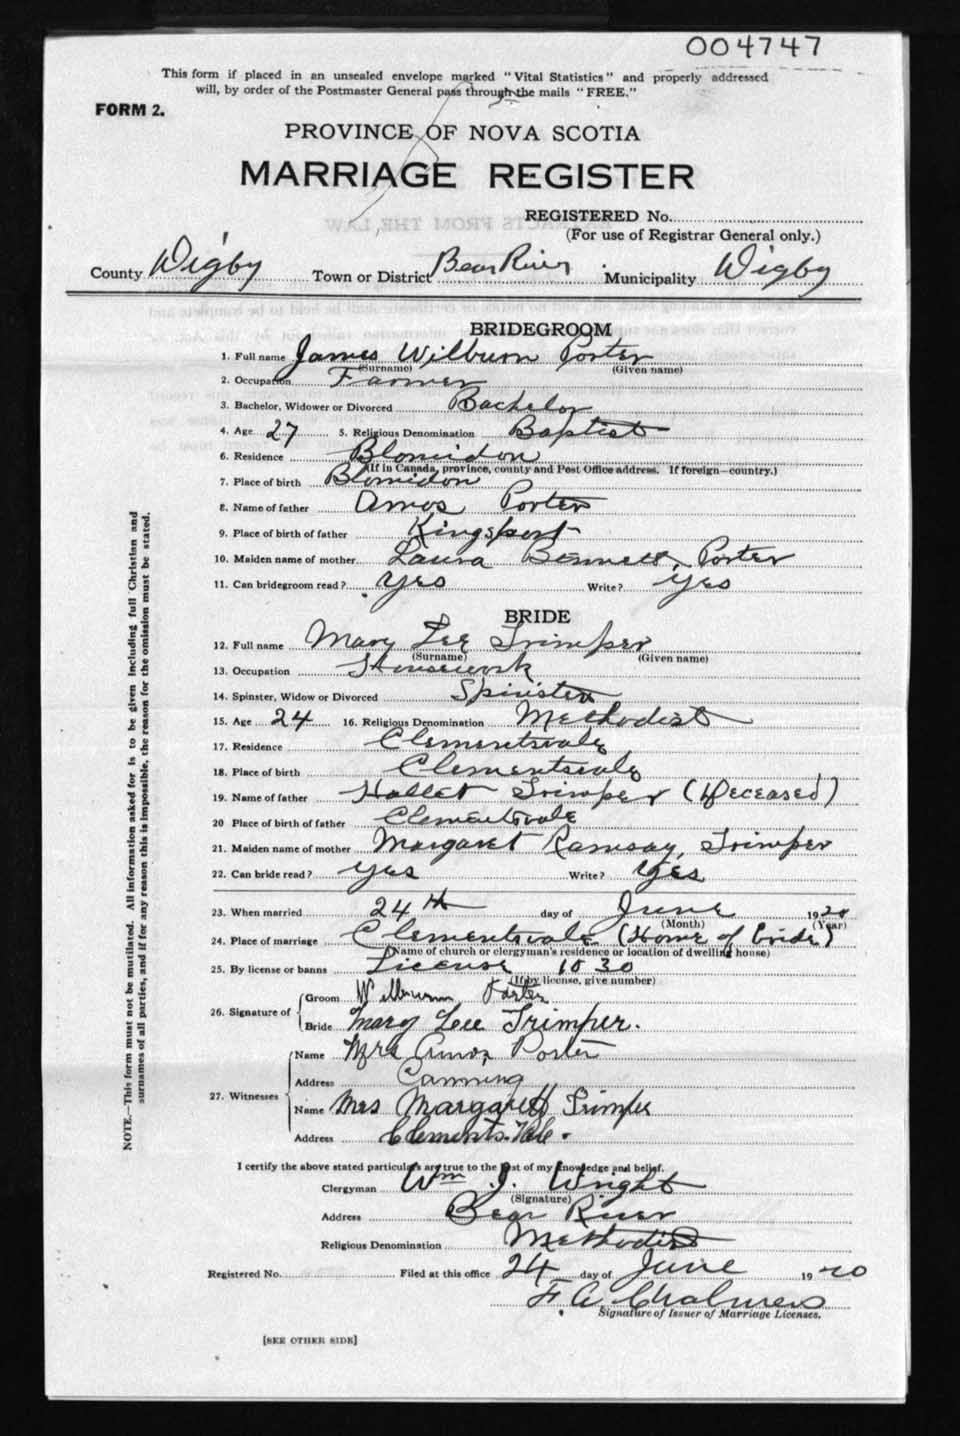 004747
This form if placed in an unsealed envelope marked "Vital Statistics" and properly addressed
will, by order of the Postmaster General pass through the mails "FREE."
FORM 2.
PROVINCE OF NOVA SCOTIA
MARRIAGE REGISTER
REGISTERED No.
(For use of Registrar General only.)
County Digby Town or District Bear River Municipality Digby
BRIDEGROOM
1. Full name James Wilburn Porter
(Surname) (Given name)
2. Occupation Farmer
3. Bachelor, Widower or Divorced Bachelor
4. Age 27 5. Religious Denomination Baptist
6. Residence Blomidon
(If in Canada, province, county and Post Office address. If foreign—country.)
7. Place of birth Blomidon
8. Name of father Amos Porter
9. Place of birth of father Kingsport
10. Maiden name of mother Laura Bennett, Porter
11. Can bridegroom read? Yes Write? Yes
BRIDE
12. Full name Mary Lee Trimper
(Surname) (Given name)
13. Occupation Housework
14. Spinster, Widow or Divorced Spinister
15. Age 24 16. Religious Denomination Methodist
17. Residence Clementsvale
18. Place of birth Clementsvale
19. Name of father Hallet Trimper (Deceased)
20 Place of birth of father Clementsvale
21. Maiden name of mother Margaret Ramsay, Trimper
22. Can bride read? Yes Write? Yes
23. When married 24th day of June 1920
(Month) (Year)
24. Place of marriage Clementsvale (Home of Bride)
(Name of church or clergyman's residence or location of dwelling house)
25. By license or banns License 1030
(If by license, give number)
26. Signature of Groom Wilburn Porter
Bride Mary Lee Trimper.
27. Witnesses Name Mrs Amos Porter
Address Canning
Name Mrs Margaret Trimper
Address Clements Vale.
I certify the above stated particulars are true to the best of my knowledge and belief.
Clergyman Wm J. Wright
(Signature)
Address Bear River
Religious Denomination Methodist
Registered No. Filed at this office 24 day of June 1920
F A Chalmers
Signature of Issuer of Marriage Licenses.
[SEE OTHER SIDE]
NOTE.—This form must not be mutilated. All information asked for is to be given including full Christian and
surnames of all parties, and if for any reason this is impossible, the reason for the omission must be stated.